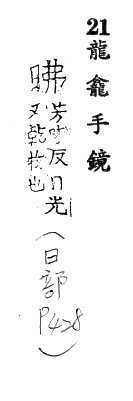 21 龍龕手鏡
昲
芳味反日光
又乾物也
(日部P428)